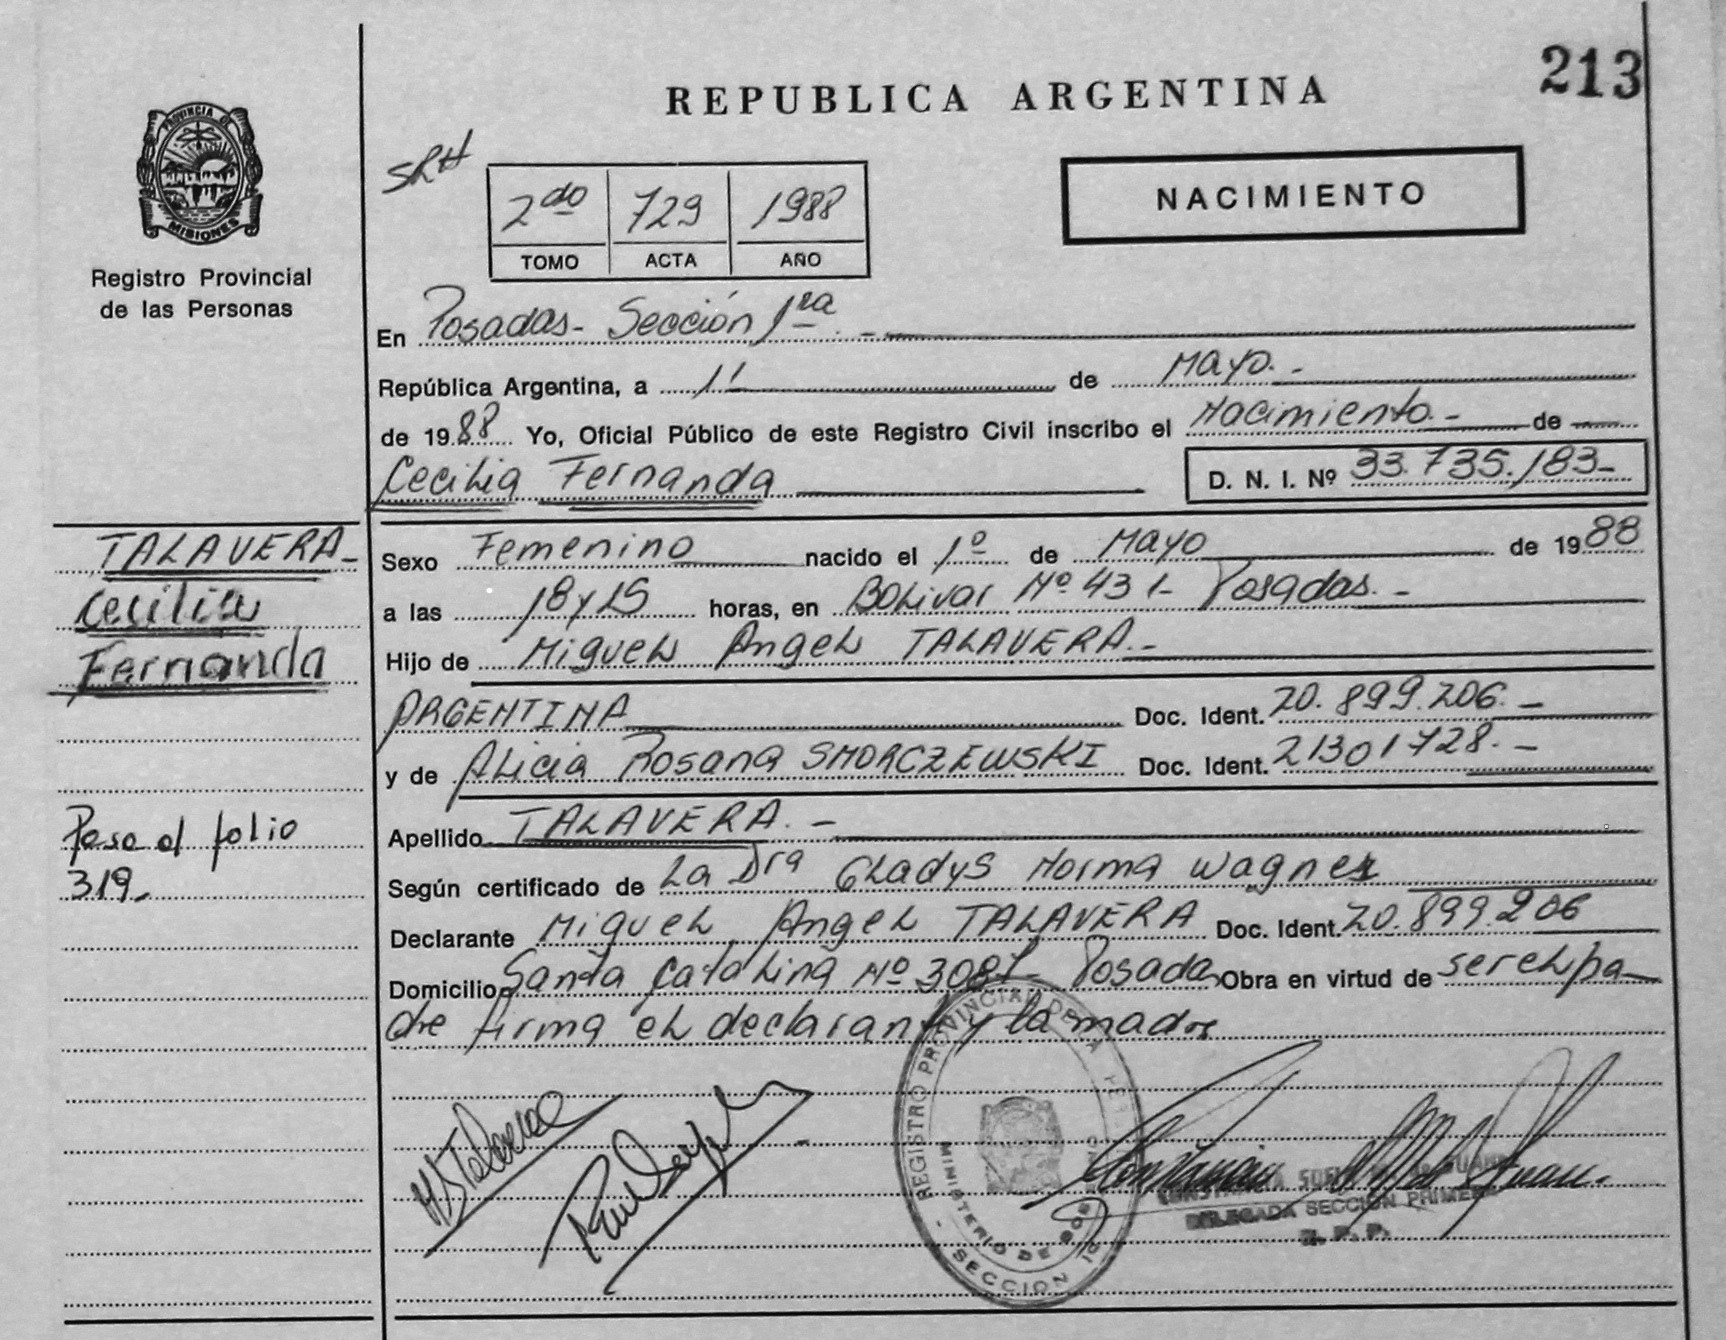 213
REPUBLICA ARGENTINA
SRH
NACIMIENTO
2do 729 1988
TOMO ACTA AÑO
PROVINCIA DE
MISIONES
Registro Provincial
de las Personas
En Posadas - Sección 1ra. -
República Argentina, a 11 de Mayo. -
de 1988 Yo, Oficial Público de este Registro Civil inscribo el Nacimiento. - de
Cecilia Fernanda D. N. I. Nº 33.735.183-
TALAVERA -
Cecilia
Fernanda
Sexo Femenino nacido el 1º de Mayo de 1988
a las 18 y 15 horas, en Bolivar Nº 431- Posadas. -
Hijo de Miguel Angel TALAVERA. -
ARGENTINA Doc. Ident. 20.899.206. -
y de Alicia Rosana SMORCZEWSKI Doc. Ident. 21301728. -
Pasa al folio
319-
Apellido TALAVERA. -
Según certificado de La Dra Gladys Norma Wagner
Declarante Miguel Angel TALAVERA Doc. Ident. 20.899.206
Domicilio Santa Catalina Nº 3087- Posadas Obra en virtud de ser el pa-
dre firma el declarante y la madre
REGISTRO PROVINCIAL DE LA
MINISTERIO DE GOB
SECCION
CONSTANCIA
DELEGADA SECCION PRIMERA
R. P. P.